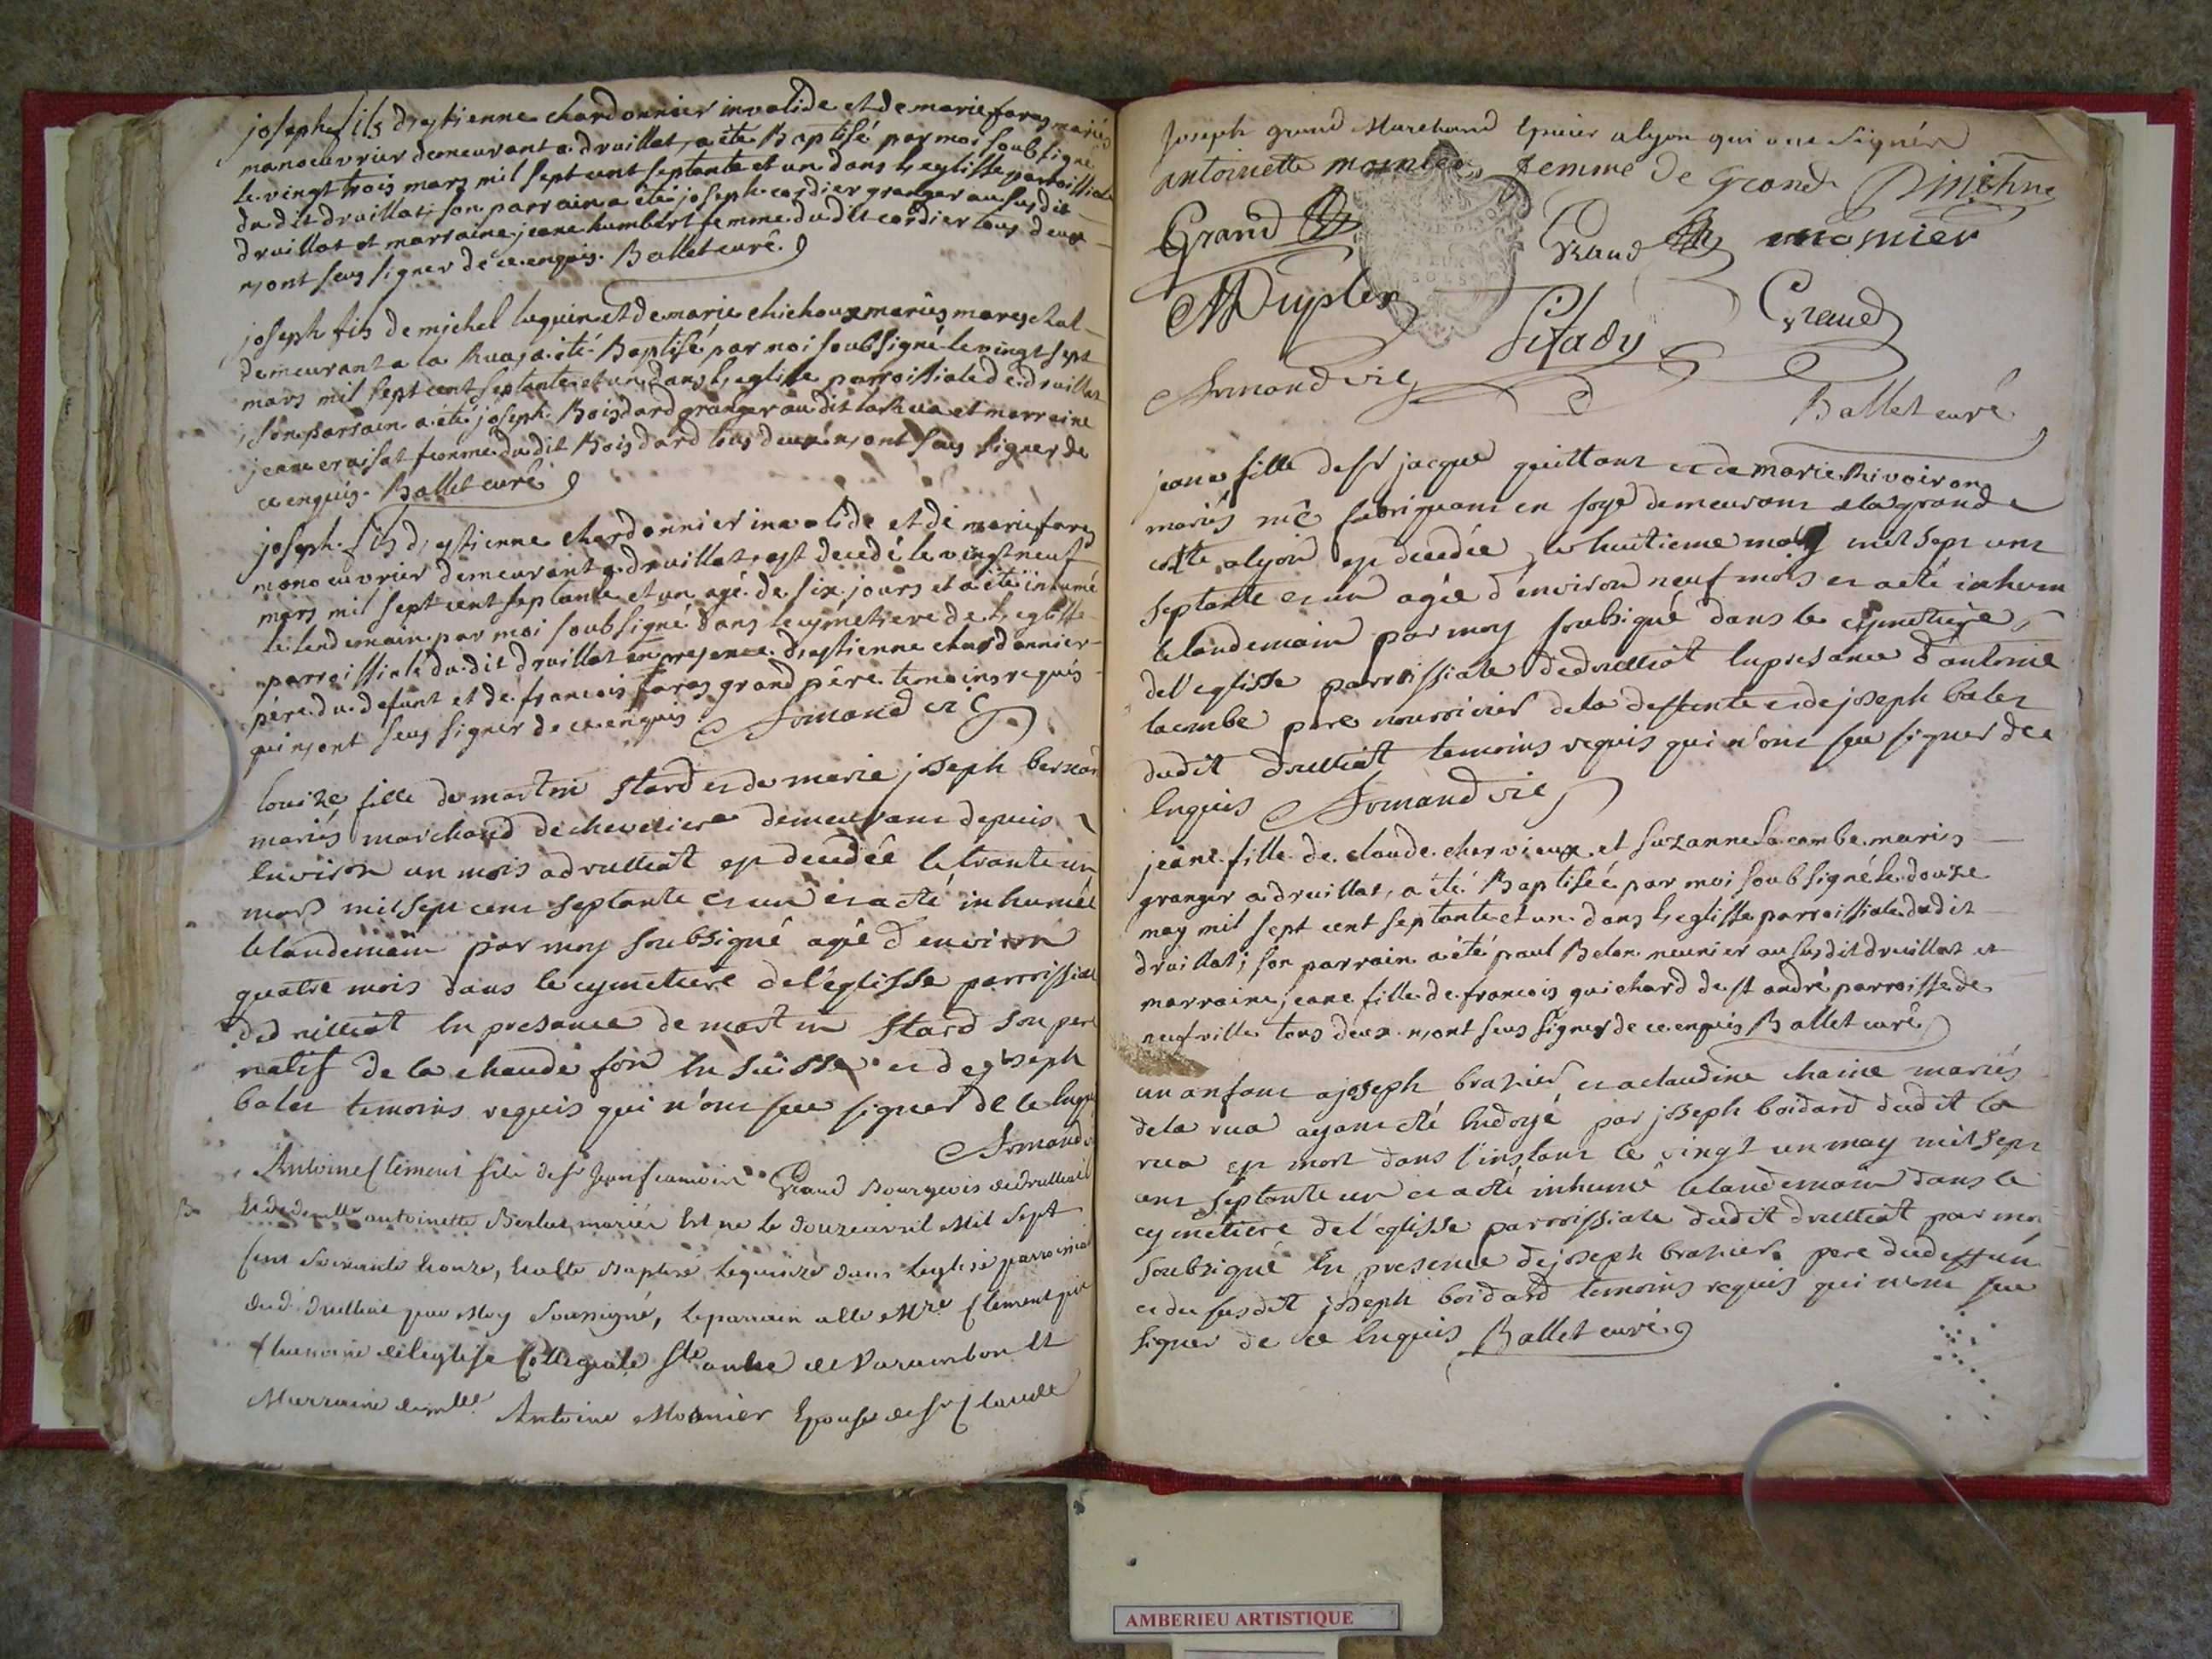 joseph fils d'estienne chardonnier invalide et de marie faras mariés
manoeuvrier demeurant a druillat, a été Baptisé par moi soubsigné
le vingt trois mars mil sept cent septante et un dans l'eglisse parroissiale
du dit druillat, son parrain a été joseph cordier granger au susdit
druillat et marraine jeane humbert femme du dit cordier tous deux
n'ont seus signer de ce enquis. Ballet curé
joseph fils de michel luguin et de marie chichoux mariés mareschal
demeurant a la Rua, a été Baptisé par moi soubsigné le vingt sept
mars mil sept cent septante et un, dans l'eglisse parroissiale de druillat
son parrain a été joseph Boisdard granger au dit la Rua et marraine
jeane femme du dit Boisdard tous deux n'ont seus signer de
ce enquis. Ballet curé
joseph fils d'estienne chardonnier invalide et de marie faras
manoeuvrier demeurant a druillat, est decedé le vingt neuf
mars mil sept cent septante et un agé de six jours et a été inhumé
le lendemain par moi soubsigné dans le cymetiere de l'eglisse
parroissiale du dit druillat en presence d'estienne chardonnier
père du defunt et de francois faras grand père temoins requis
qui n'ont seus signer de ce enquis Armand vic
louize fille de martin stard et de marie joseph bernard
mariés marchand de demeurant depuis
environ un mois a drulliat est decedée le trante un
mars mil sept cent septante et un et a eté inhumée
le landemain par moy soubsigné agée d'environ
quatre mois dans le cymetiere de l'eglisse parroissiale
de drulliat en presance de martin stard son pere
natif de la chaude fon en suisse et de joseph
balet temoins requis qui n'ont seu signer de ce enquis
Armand v
Antoine Clement fils de sr Jean francois Grand Bourgeois de drulliat
et de demlle antoinette mariés est né le douze avril Mil Sept
Cent Soixante honze, et a été Baptisé le quinze dans leglise parroissial
dud. drulliat par Moy Soussigné, le parrain a été Mre Clement
Chanoine de leglise Collegiale Ste anne de Varambon Et
Marraine demlle Antoine Monier Epouse de sr Claude
Joseph grand Marchand Epicier a lyon qui ont Signés
antoinette monier femme de Grand
Grand Grand monier
Grand
Armand vic
Ballet curé
jeane fille de sr jacque guittant et de marie Rivoiron
mariés me fabriquant en soye demeurant a la grande
cotte a lyon est decedée le huitieme may mil sept cent
septante et un agée d'environ neuf mois et a eté inhum
le landemain par moy soubsigné dans le cymetiere
de l'eglisse parroissiale de drulliat en presance d'antoine
lacombe pere nourricier de la deffunte et de joseph balet
dudit drulliat temoins requis qui n'ont seu signer de ce
enquis Armand vic
jeane fille de claude chervieux et suzanne Lacombe mariés
granger a druillat, a été Baptisée par moi soubsigné le douze
may mil sept cent septante et un dans l'eglisse parroissiale dudit
druillat; son parrain a été paul Belon meunier au susdit druillat et
marraine jeane fille de francois guichard de st andré parroisse de
neufville tous deux n'ont seus signer de ce enquis Ballet curé
un anfant a joseph brazier et a claudine chaine mariés
de la rua ayant eté endoyé par joseph boidard dudit la
rua est mort dans l'instant le vingt un may mil sept
cent septante un et a eté inhumé le landemain dans le
cymetiere de l'eglisse parroissiale dudit drulliat par moi
soubsigné en presence de joseph brazier pere du deffun
et du susdit joseph boidard temoins requis qui n'ont seu
signer de ce enquis Ballet curé
AMBERIEU ARTISTIQUE